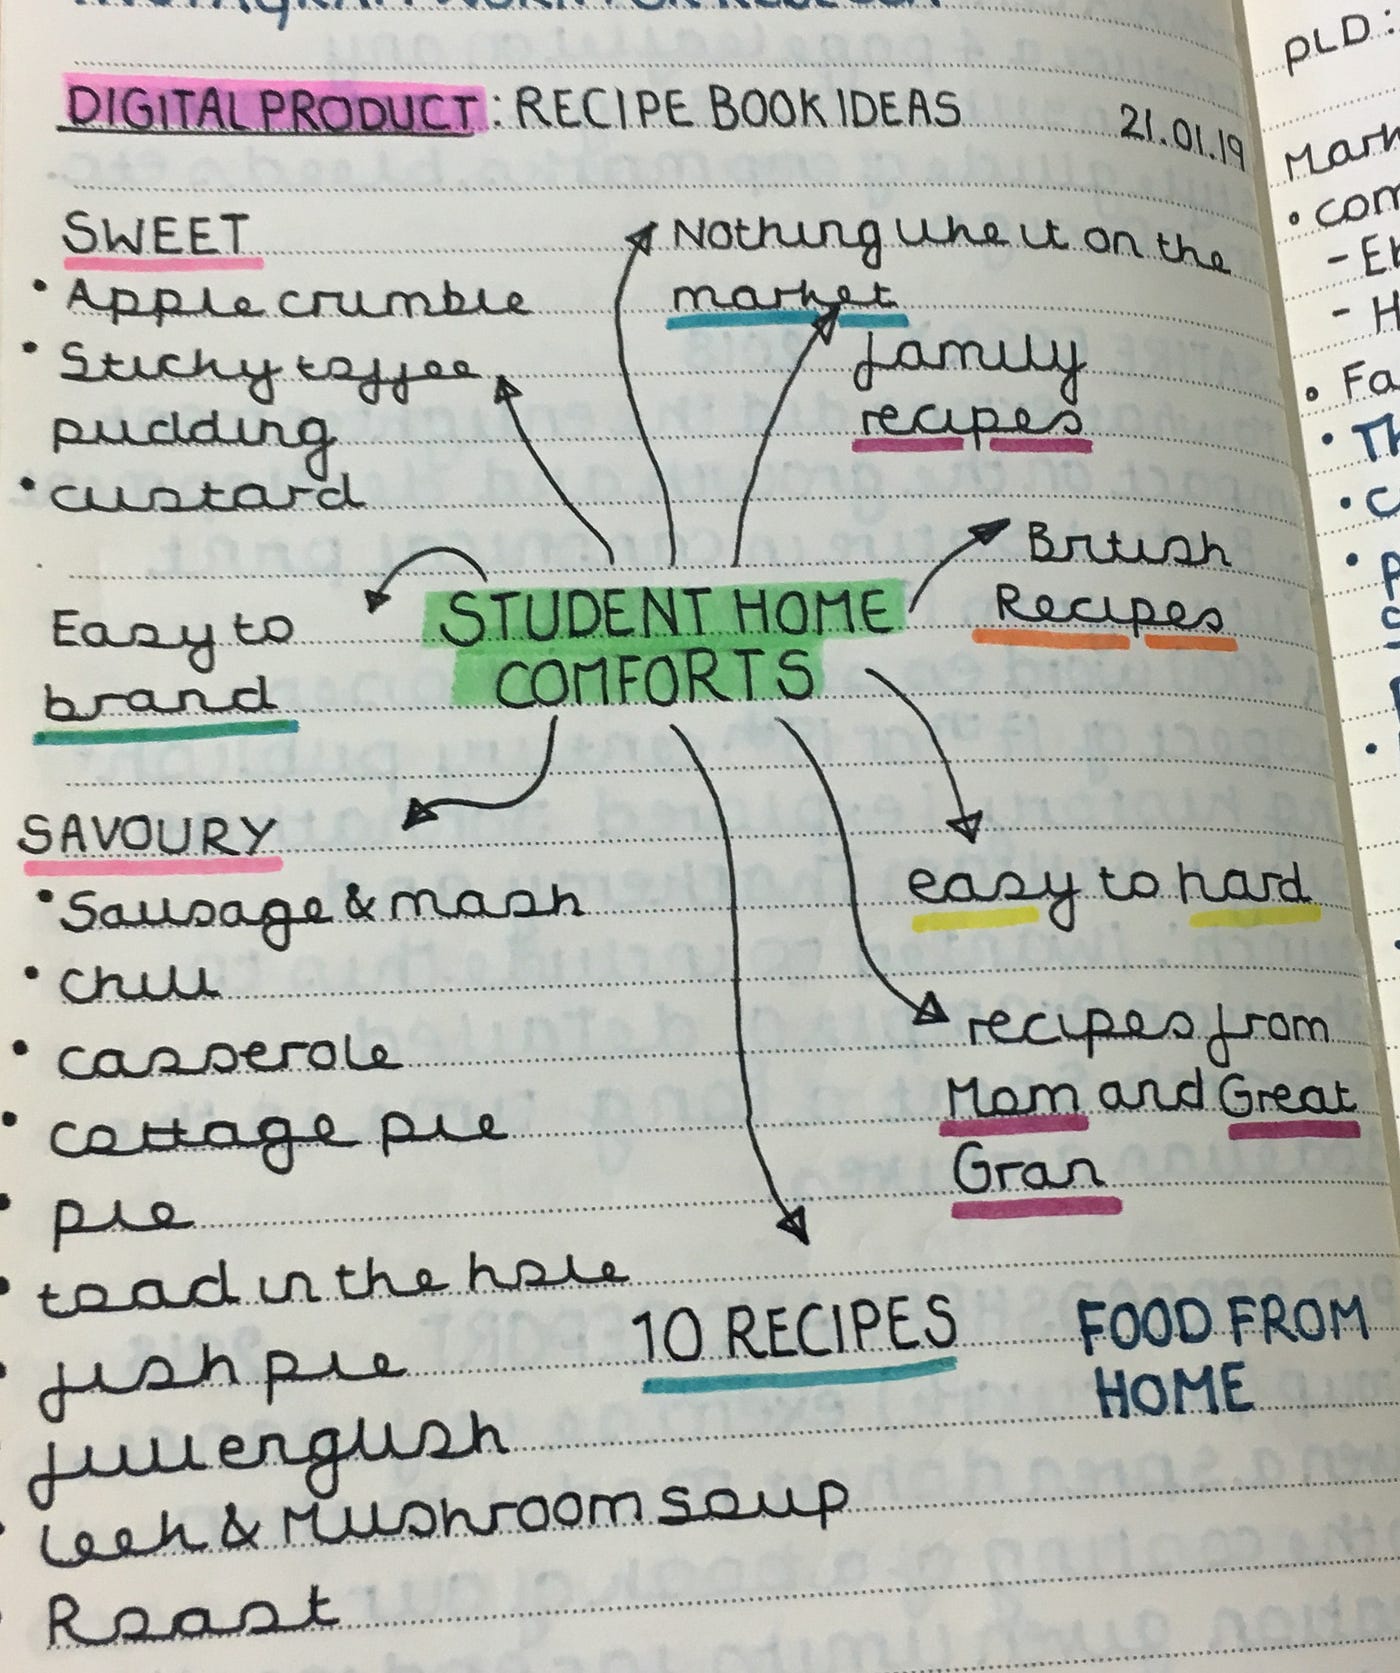 DIGITAL PRODUCT: RECIPE BOOK IDEAS
21.01.19
SWEET
• Apple crumble
• Sticky toffee
pudding
• custard
Nothing like it on the
market
family
recipes
British
Recipes
Easy to
brand
STUDENT HOME
COMFORTS
SAVOURY
• Sausage & mash
• chilli
• casserole
• cottage pie
• pie
• toad in the hole
• fish pie
full english
• leek & Mushroom soup
• Roast
easy to hard
recipes from
Mom and Great
Gran
10 RECIPES
FOOD FROM
HOME
PLD: